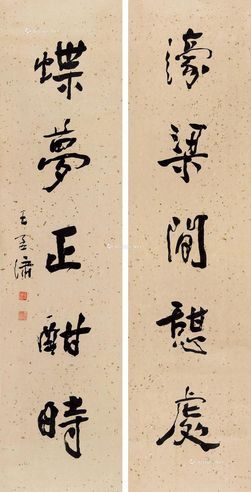 濠梁閒憩處
蝶夢正酣時
王孟瀟